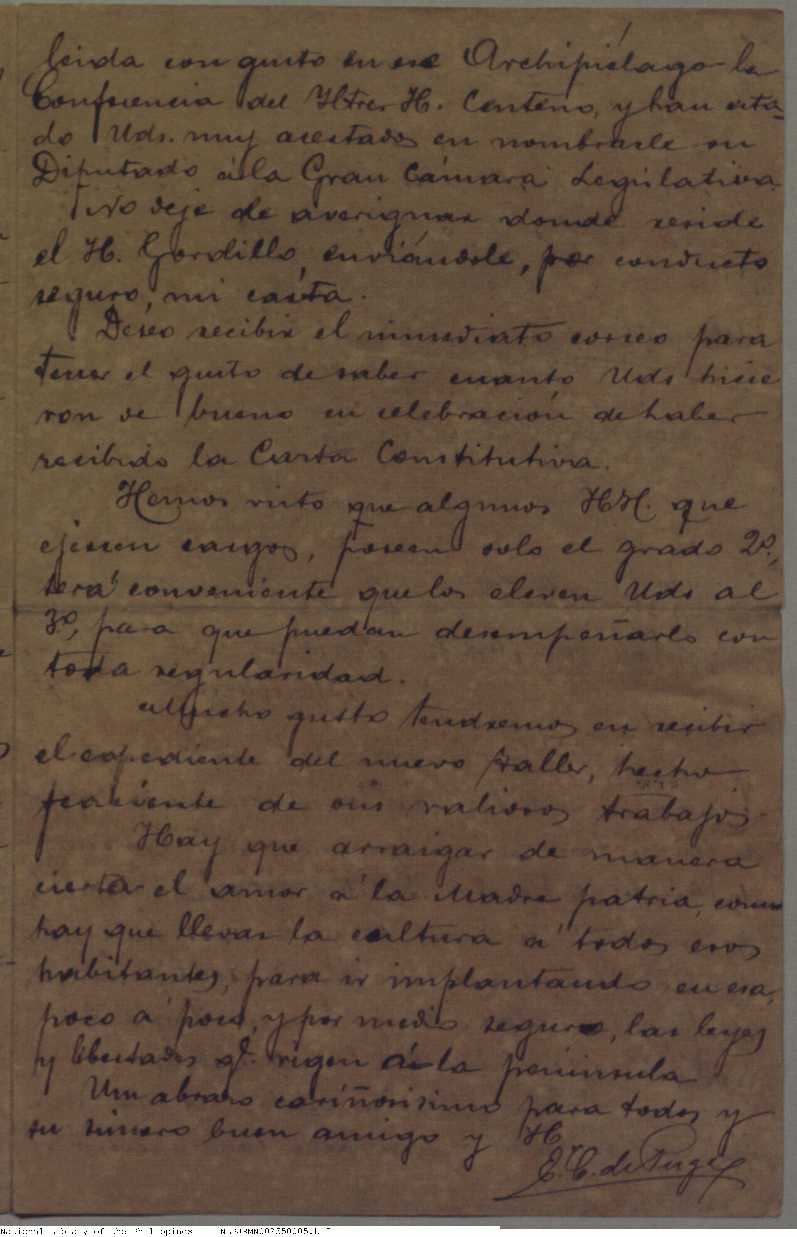 leida con gusto en ese Archipiélago la
Conferencia del Iltre. H. Centeno, y han esta-
do Uds. muy acertados en nombrarle su
Diputado á la Gran Cámara Legislativa
No deje de averiguar donde reside
el H. Gordillo, enviándole, por conducto
seguro, mi carta.
Deseo recibir el inmediato correo para
tener el gusto de saber cuanto Uds hicie
ron de bueno en celebración de haber
recibido la Carta Constitutiva.
Hemos visto que algunos HH. que
ejercen cargos, poseen solo el grado 2º,
será conveniente que los eleven Uds al
3º, para que puedan desempeñarlo con
toda regularidad.
Mucho gusto tendremos en recibir
el expediente del nuevo taller, hecho
de sus valiosos trabajos
Hay que arraigar de manera
cierta el amor á la Madre patria, como
hay que llevar la cultura á todos esos
habitantes, para ir implantando en esa,
poco á poco, y por medio seguro, las leyes
y libertades qe. rigen á la peninsula
Un abrazo cariñosisimo para todos y
su sincero buen amigo y H
E. C. de Puga
National Library of the Philippines